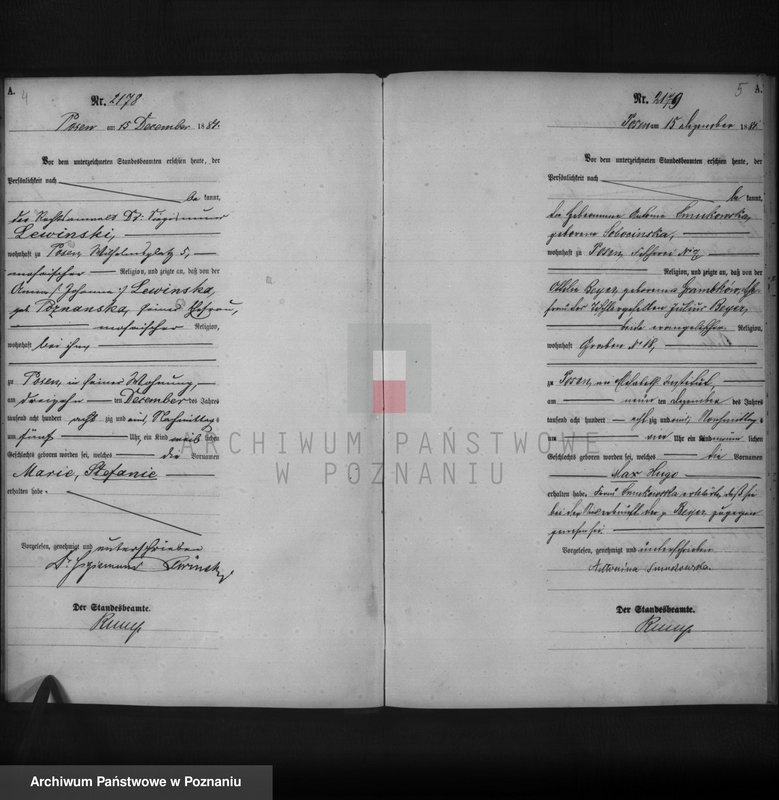 A.
4
Nr. 2178
Posen am 15 December 1881.
Vor dem unterzeichneten Standesbeamten erschien heute, der
Persönlichkeit nach
be kannt,
der Rechtsanwalt Dr: Sigismund
Lewinski,
wohnhaft zu Posen, Wilhelmsplatz 5,
mosaischer Religion, und zeigte an, daß von der
Anna /: Johanna :/ Lewinska,
geb. Poznanska, seiner Ehefrau,
mosaischer Religion,
wohnhaft bei ihm,
zu Posen, in seiner Wohnung,
am dreizehn ten December des Jahres
tausend acht hundert acht zig und eins, Nachmittags
um fünf Uhr, ein Kind weib lichen
Geschlechts geboren worden sei, welches die Vornamen
Marie, Stefanie
erhalten habe.
Vorgelesen, genehmigt und unterschrieben
Dr. Sigismund Lewinski
Der Standesbeamte.
5
A.
Nr. 2179
Posen am 15 Dezember 1881.
Vor dem unterzeichneten Standesbeamten erschien heute, der
Persönlichkeit nach
be kannt,
die Hebeamme
geborene Sobocinska,
wohnhaft zu Posen, Fischerei No 7
Religion, und zeigte an, daß von der
Ottilie Beyer, geborene Grambkow, Ehe
frau des Tischlergesellen Julius Beyer,
beide evangelischer Religion,
wohnhaft Graben No 18,
zu Posen, im Elisabeth Institut,
am neun ten Dezember des Jahres
tausend acht hundert acht zig und eins, Nachmittags
um Uhr, ein Kind männ lichen
Geschlechts geboren worden sei, welches die Vornamen
Max Hugo
erhalten habe. Frau erklärte, daß sie
bei der Niederkunft der p. Beyer zugegen
gewesen sei.
Vorgelesen, genehmigt und unterschrieben
Antonina
Der Standesbeamte.
ARCHIWUM PAŃSTWOWE
W POZNANIU
Archiwum Państwowe w Poznaniu